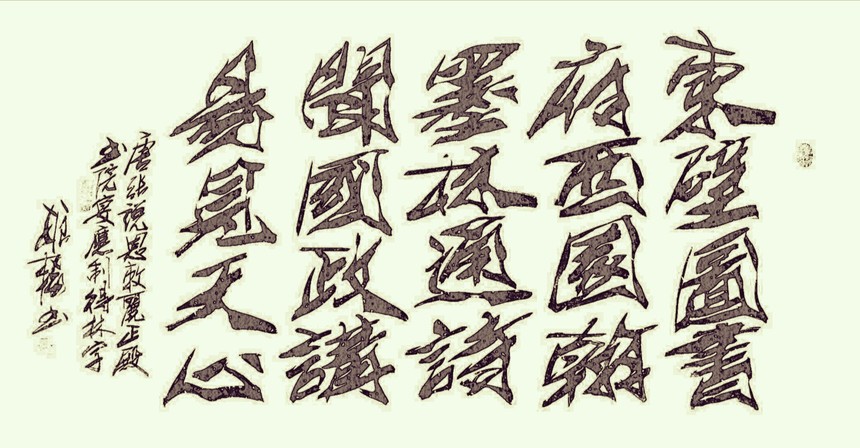 東壁圖書
府西園翰
墨林通詩
聞國政講
易見天心
唐张說恩敕麗正殿
书院宴應制得林字
书